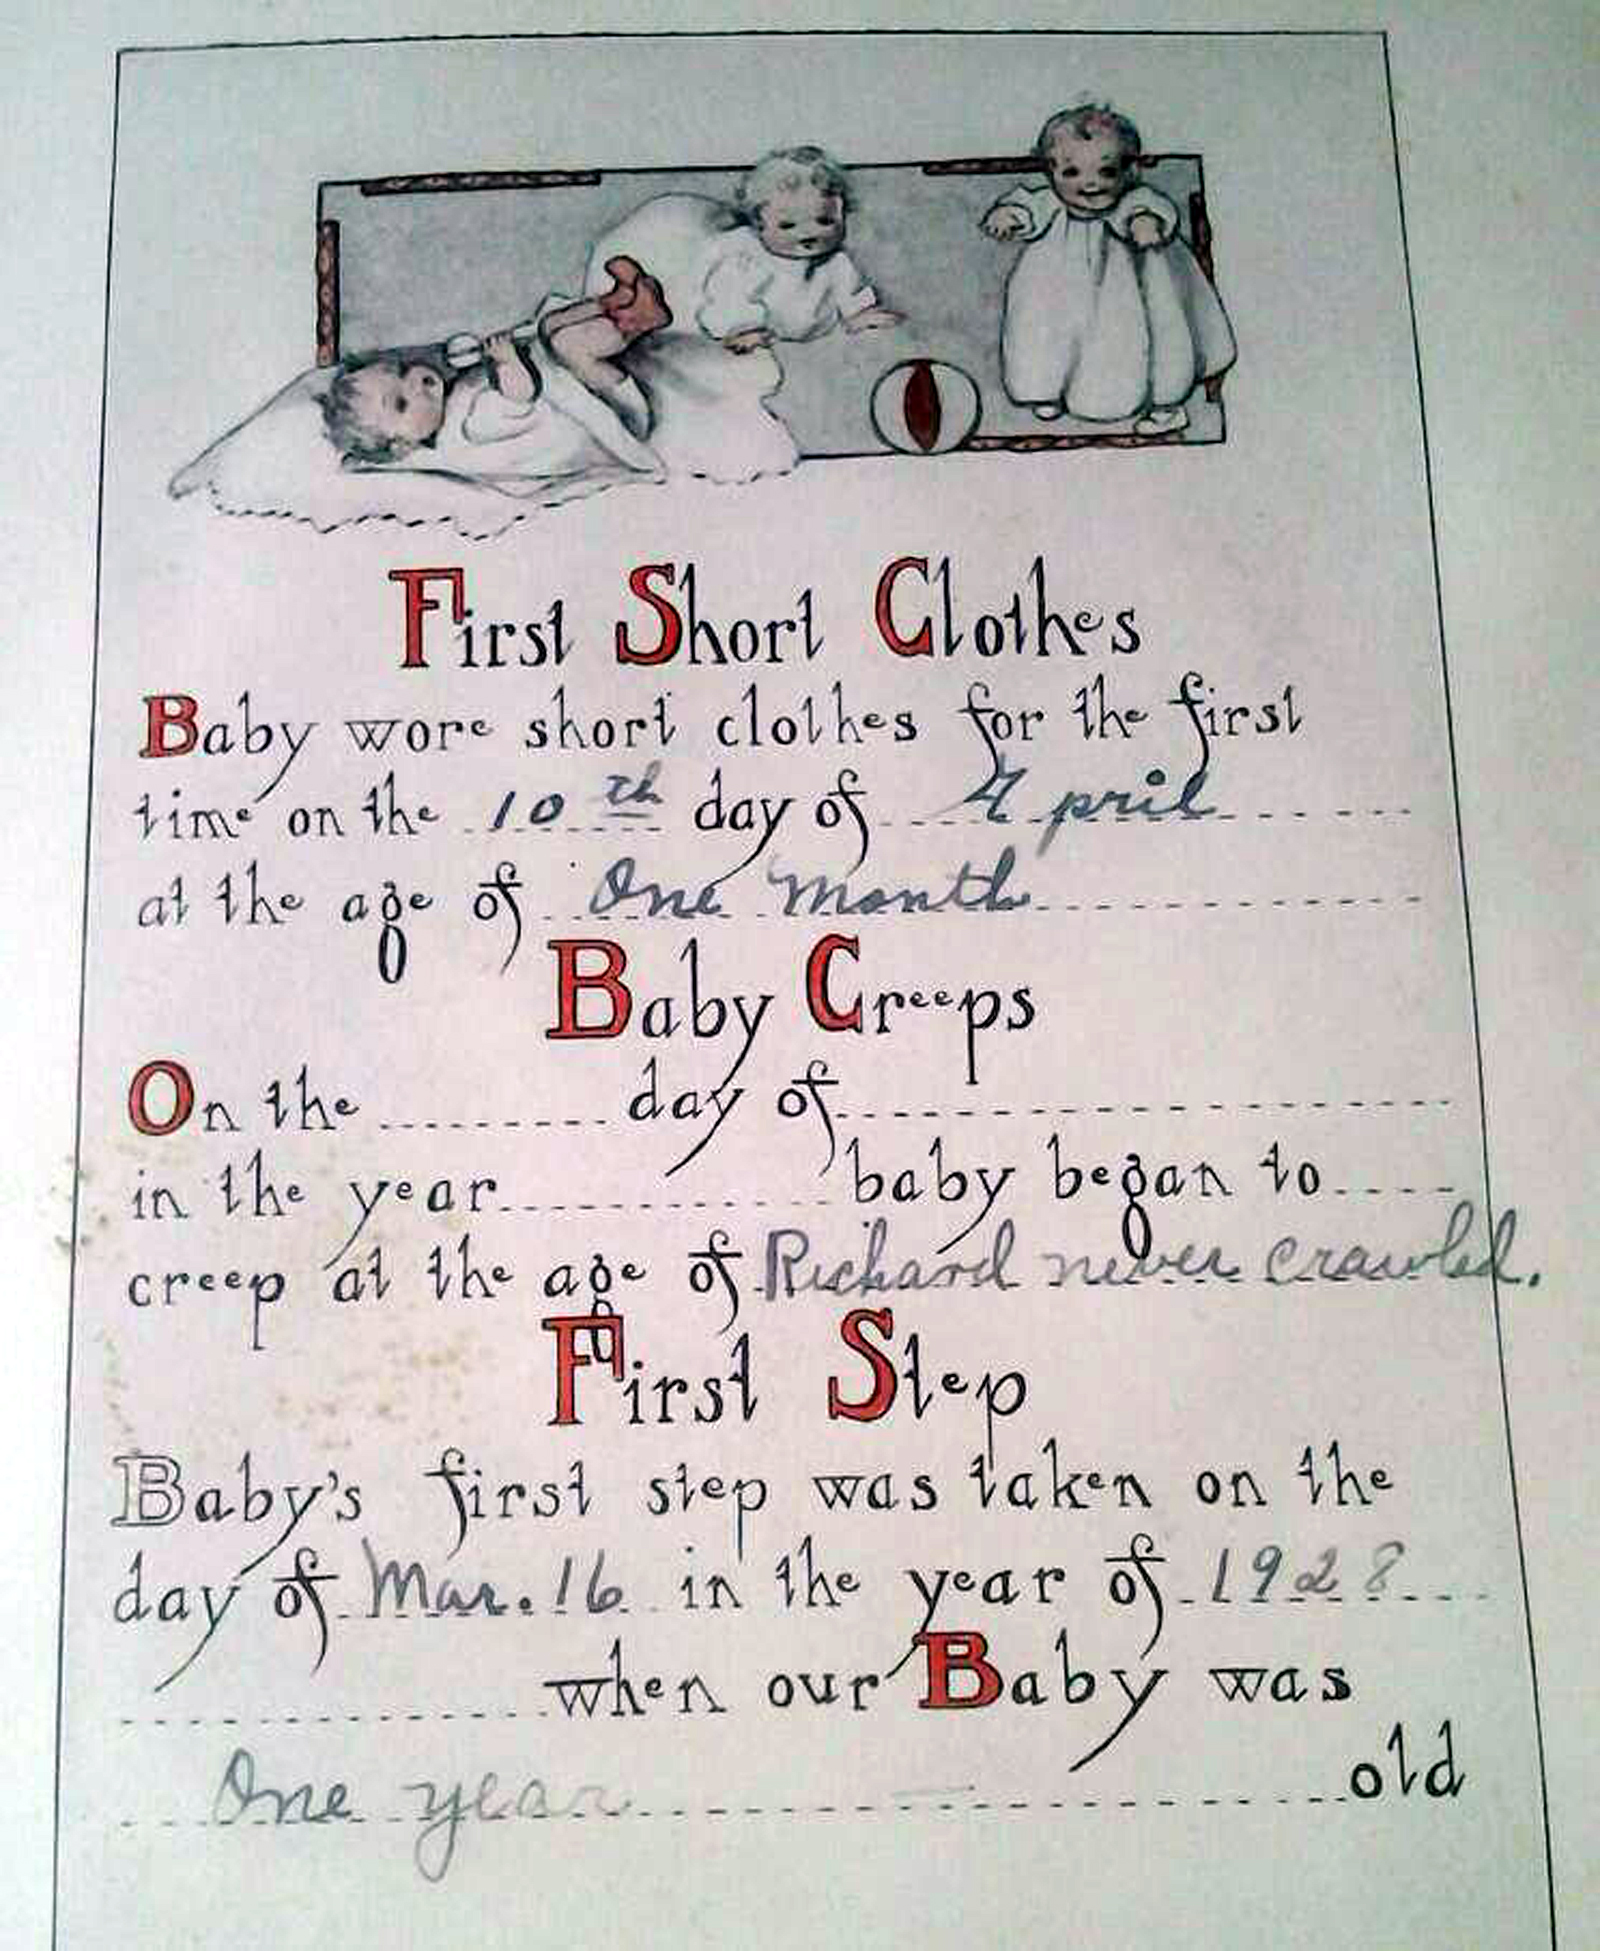 First Short Clothes
Baby wore short clothes for the first
time on the 10th day of April
at the age of One Month
Baby Creeps
On the day of
in the year baby began to
creep at the age of Richard never crawled.
First Step
Baby's first step was taken on the
day of Mar. 16 in the year of 1928
when our Baby was
One year old